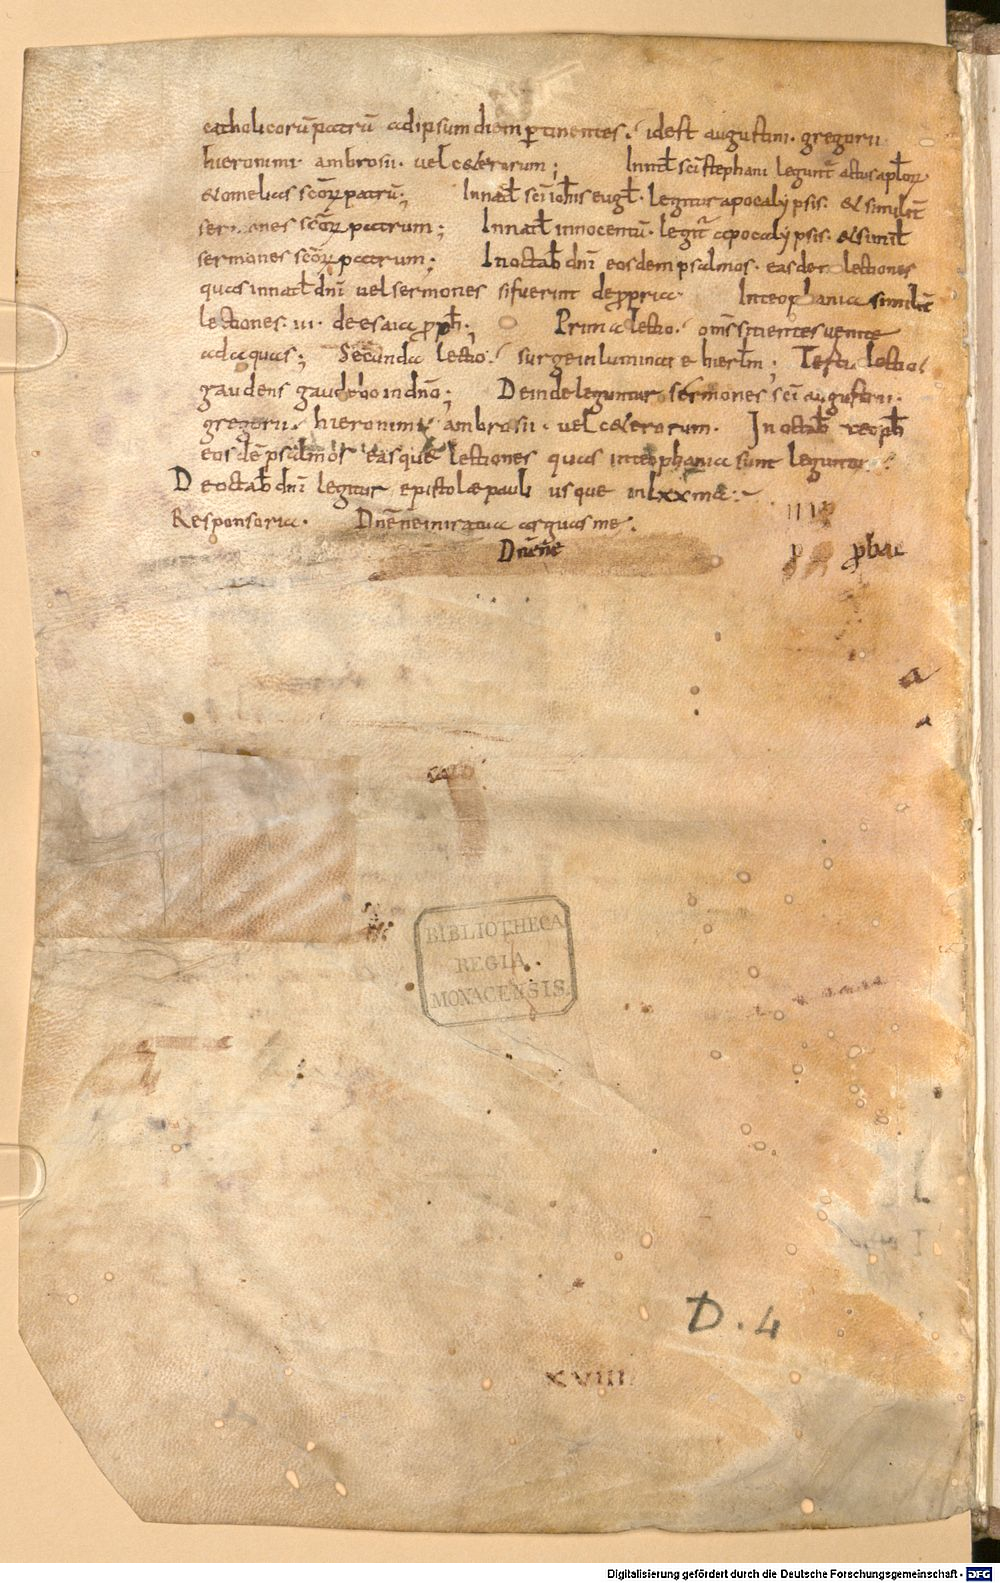 catholicorū patrū ad ipsum diem ꝑtinentes. idest augustini. gregorii
hieronimi. ambrosii. vel ceterorum; In natł sc̄i stephani leguntʳ actus apłoꝝ
et omelias sc̄oꝝ patrū; In natł sc̄i ioħis eugł. legitur apocalypsis. et similit̄
sermones sc̄oꝝ patrum; In natł innocentū. legitʳ apocalypsis. et similꝉ
sermones sc̄oꝝ patrum; In octab̄ dn̄i eosdem psalmos. easdem lectiones
quas in natł dn̄i vel sermones si fuerint de ꝓpria. In teophania similit̄
lectiones. iii. de esaia ꝓpħ; Prima lectio. om̄s sitientes venite
ad aquas; Secunda lectio. surge inluminare hierłm; Tertia lectio
gaudens gaudebo in dn̄o; Deinde leguntur sermones sc̄i augustini.
gregorii. hieronimi. ambrosii. vel ceterorum. In octab̄ teopħ
eosdē psalmos easque lectiones quas in teophania sunt leguntur.
De octab̄ dn̄i legitur epistolæ pauli usque in lxxma:
Responsoria. Dn̄e ne in ira tua arguas me.
IIII
Dn̄e ne
p ꝓba
a
a
BIBLIOTHECA
REGIA
MONACENSIS.
D. 4
XVIIII
Digitalisierung gefördert durch die Deutsche Forschungsgemeinschaft - DFG